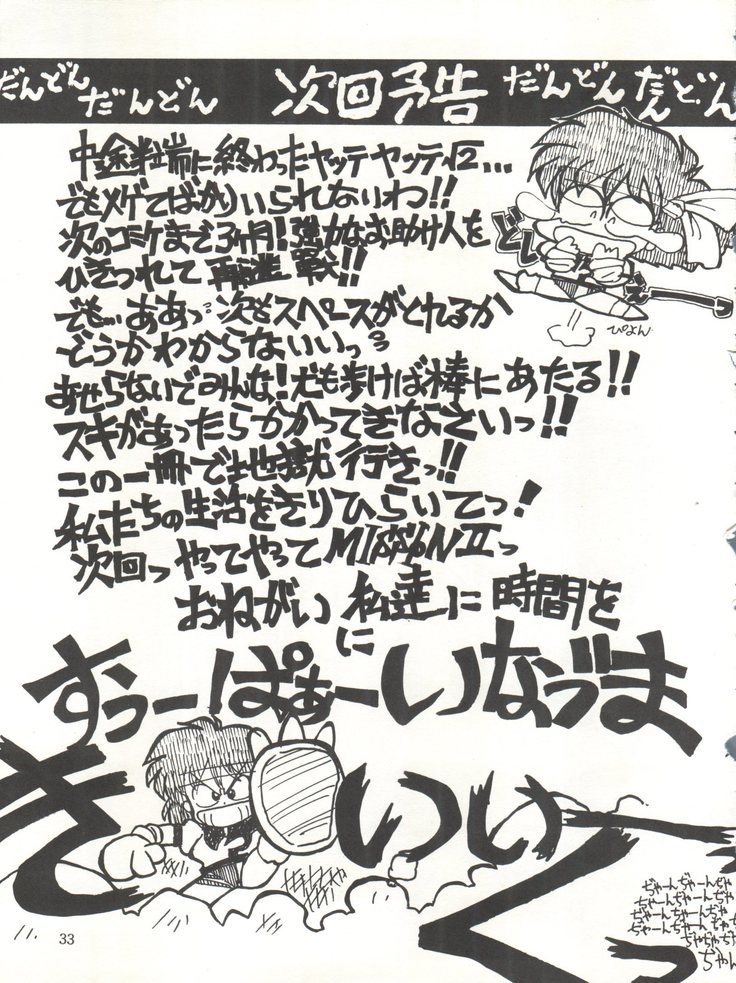 だんどん
だんどん
次回予告
だんどん
だんどん
中途半端に終わったヤッテヤッテ√2…
でもメゲてばかりいられないわ!!
どん
次のコミケまで3ヶ月!強力なお助け人を
ひきつれて再挑戦!!
ぴよん
でも…ああっ次もスペースがとれるか
どうかわからないいっ
あせらないでみんな!犬も歩けば棒にあたる!!
スキがあったらかかってきなさいっ!!
この一冊で地獄行きっ!!
私たちの生活をきりひらいてっ!
次回っやってやってMISSIONⅡっ
おねがい私達に時間を
に
すっーぱぁーいなづま
きいいくっ
ぢゃーんぢゃーんぢゃ
ぢゃーんぢゃーん
ぢゃーんぢゃーんぢゃ
ぢゃーんぢゃーんぢゃーん
ぢゃぢゃぢゃ
ぢゃん
33